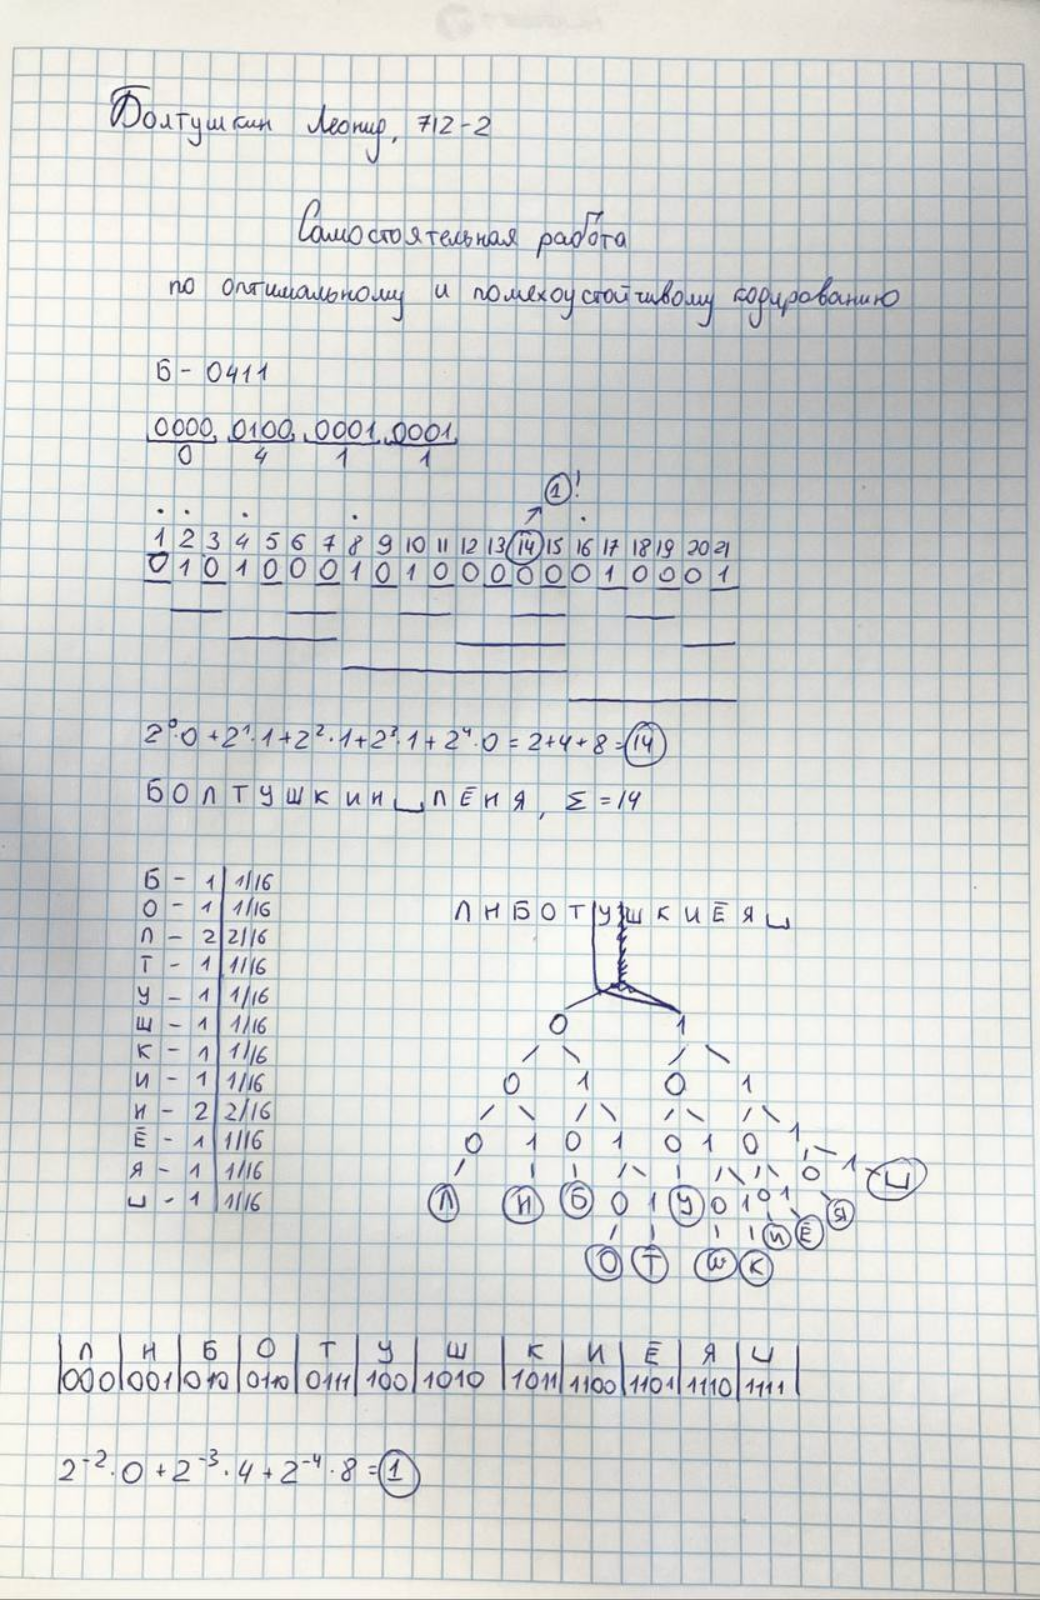 Болтушкин Леонид, 712-2
Самостоятельная работа
по оптимальному и помехоустойчивому кодированию
Б - 0411
0000 0100 0001 0001
0 4 1 1
1!
1 2 3 4 5 6 7 8 9 10 11 12 13 14 15 16 17 18 19 20 21
0 1 0 1 0 0 0 1 0 1 0 0 0 0 0 0 1 0 0 0 1
2⁰·0 + 2¹·1 + 2²·1 + 2³·1 + 2⁴·0 = 2+4+8 = 14
БОЛТУШКИН␣ЛЁНЯ, Σ = 14
Б - 1 | 1/16
О - 1 | 1/16
Л - 2 | 2/16
Т - 1 | 1/16
У - 1 | 1/16
Ш - 1 | 1/16
К - 1 | 1/16
И - 1 | 1/16
Н - 2 | 2/16
Ё - 1 | 1/16
Я - 1 | 1/16
␣ - 1 | 1/16
Л Н Б О Т У Ш К И Ё Я ␣
0 1
0 1 0 1
0 1 0 1 0 1 0 1
0 1
Л Н Б 0 1 У 0 1 0 1 Я ␣
И Ё
О Т Ш К
Л | Н | Б | О | Т | У | Ш | К | И | Ё | Я | ␣
000 | 001 | 010 | 0110 | 0111 | 100 | 1010 | 1011 | 1100 | 1101 | 1110 | 1111
2⁻²·0 + 2⁻³·4 + 2⁻⁴·8 = 1